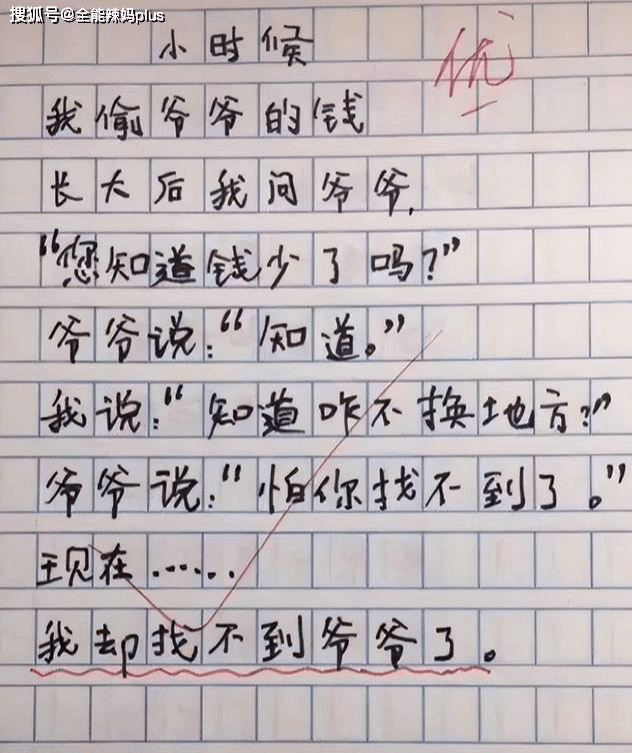 搜狐号@全能辣妈plus
小时候
优
我偷爷爷的钱
长大后我问爷爷，
“您知道钱少了吗？”
爷爷说：“知道。”
我说：“知道咋不换地方？”
爷爷说：“怕你找不到了。”
现在……
我却找不到爷爷了。